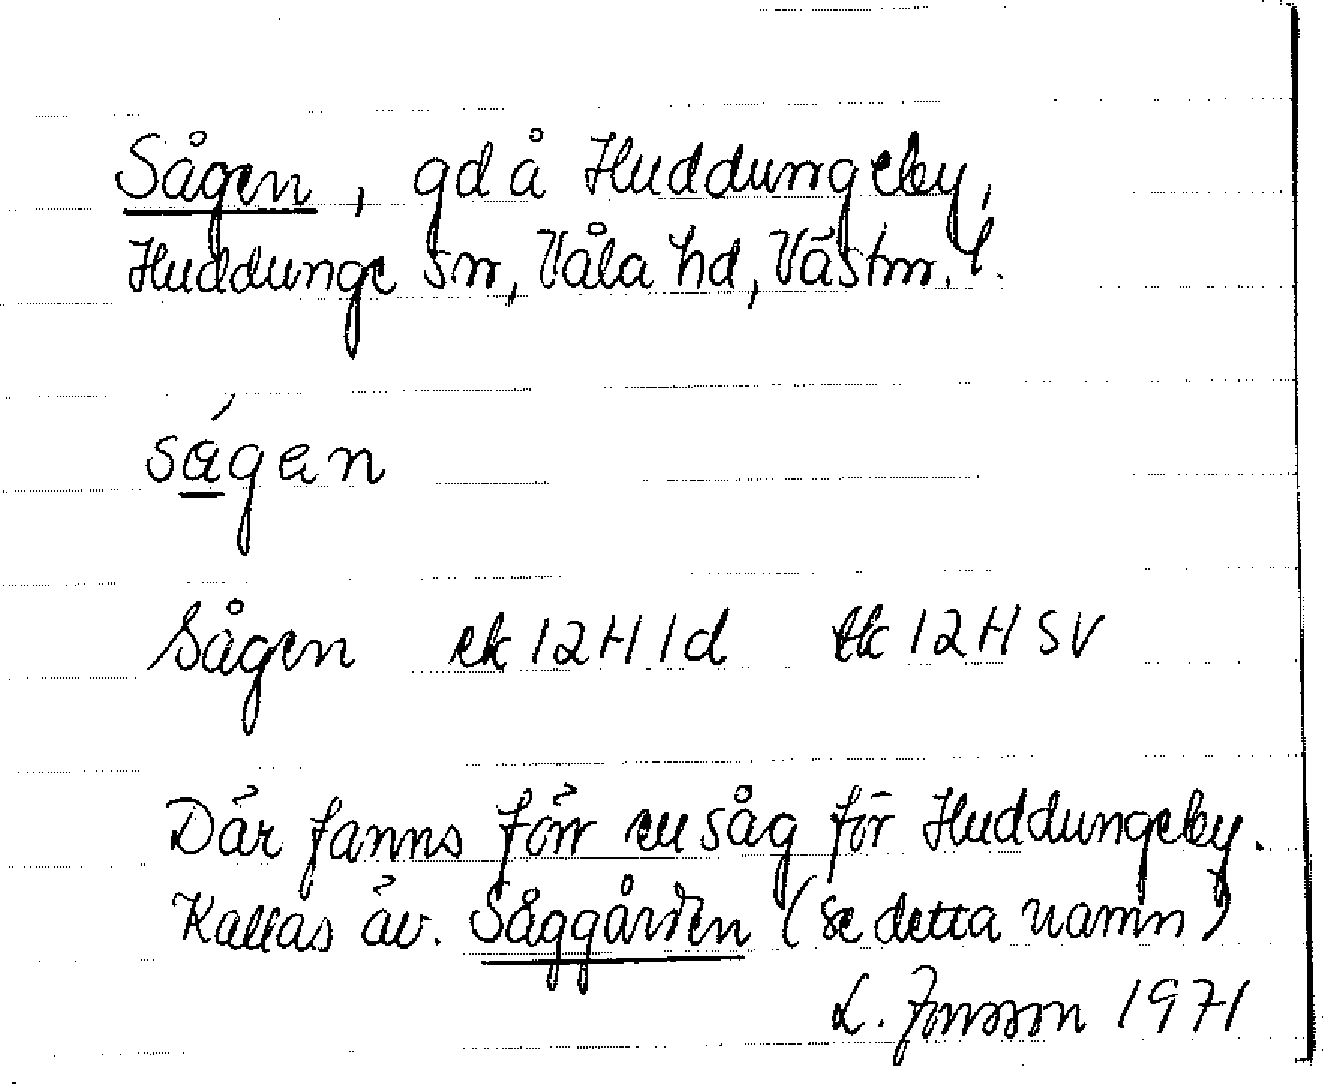 Sågen, gd å Huddungeby,
Huddunge sn, Våla hd, Västm. l.
ságen
Sågen ek 12H1d tk 12H SV
Där fanns förr en såg för Huddungeby.
Kallas äv. Såggården (se detta namn)
L. Jonsson 1971